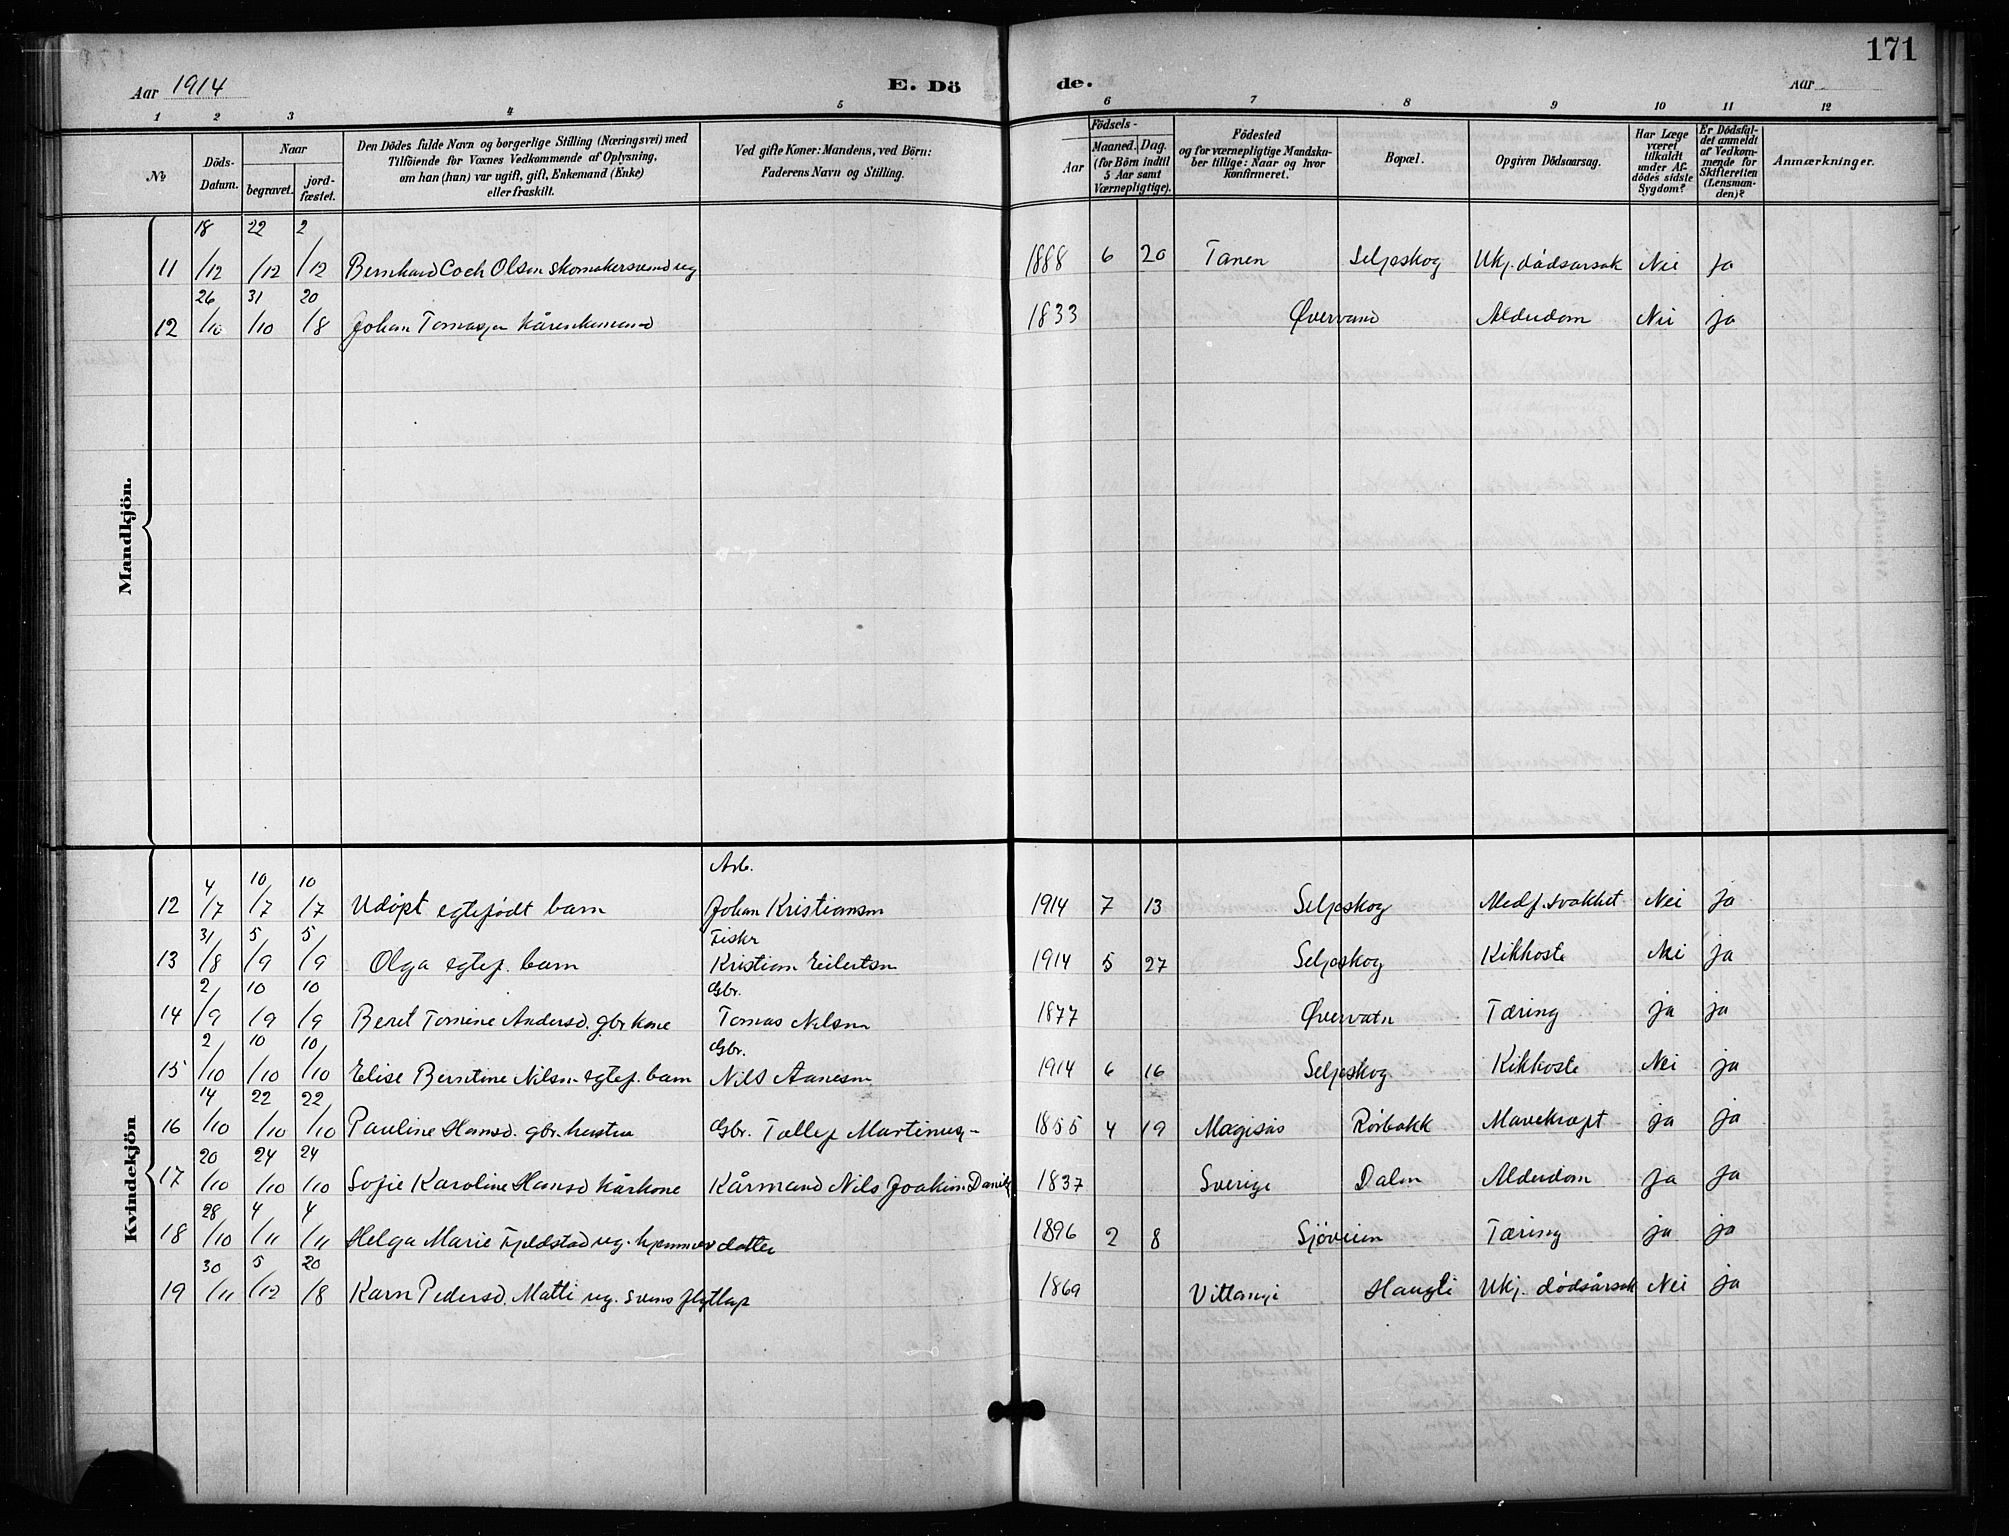 171
Aar 1914
E. Dö de.
Aar
1 2 3 4 5 6 7 8 9 10 11 12
№
Döds-Datum.
Naar
begravet.
jord-fæstet.
Den Dödes fulde Navn og borgerlige Stilling (Næringsvei) med
Tilföiende for Voxnes Vedkommende af Oplysning,
om han (hun) var ugift, gift, Enkemand (Enke)
eller fraskilt.
Ved gifte Koner: Mandens, ved Börn:
Faderens Navn og Stilling.
Födsels-
Aar
Maaned. Dag.
(for Börn indtil
5 Aar samt
Værnepligtige).
Födested
og for værnepligtige Mandska-
ber tillige: Naar og hvor
konfirmeret.
Bopæl.
Opgiven Dödsaarsag.
Har Læge
været
tilkaldt
under Af-
dödes sidste
Sygdom?
Er Dödsfal-
det anmeldt
af Vedkom-
mende for
Skifteretten
(Lensman-
den)?
Anmærkninger.
Mandkjön.
18 22 2
11 /12 /12 /12 Bernhard Coch Olsen skomakersvend ug 1888 6 20 Tanen Seljeskog Ukj. dødsarsak Nei ja
26 31 20
12 /10 /10 /8 Johan Tomasen kårenkemand 1833 Øvervand Alderdom Nei ja
Kvindekjön
Arb.
4 10 10
12 /7 /7 /7 Udøpt egtefødt barn Johan Kristiansen 1914 7 13 Seljeskog Medf. svakhet Nei ja
31 5 5 Fisker
13 /8 /9 /9 Olga egtef. barn Kristian Eilertsen 1914 5 27 Seljeskog Kikhoste Nei ja
2 10 10 Gbr.
14 /9 /9 /9 Beret Tomine Andersd. gbr kone Tomas Nilsen 1877 Øvervatn Tæring ja ja
2 10 10 Gbr.
15 /10 /10 /10 Elise Berntine Nilsn. egtef. barn Nils Aanesen 1914 6 16 Seljeskog Kikhoste Nei ja
14 22 22
16 /10 /10 /10 Pauline Hansd. gbr. hustru Gbr. Tollef Martinus- 1855 4 19 Mægisås Rörbakk Mavekræft ja ja
20 24 24
17 /10 /10 /10 Sofie Karoline Hansd kårkone Kårmand Nils Joakim Daniels 1837 Sverige Dalen Alderdom ja ja
28 4 4
18 /10 /11 /11 Helga Marie Fjeldstad ug. hjemmev datter 1896 2 8 Sjøveien Tæring ja ja
30 5 20
19 /11 /12 /8 Karn Pedersd. Matti ug. svens flytlap 1869 Vittangi Haugli Ukj. dødsårsak Nei ja